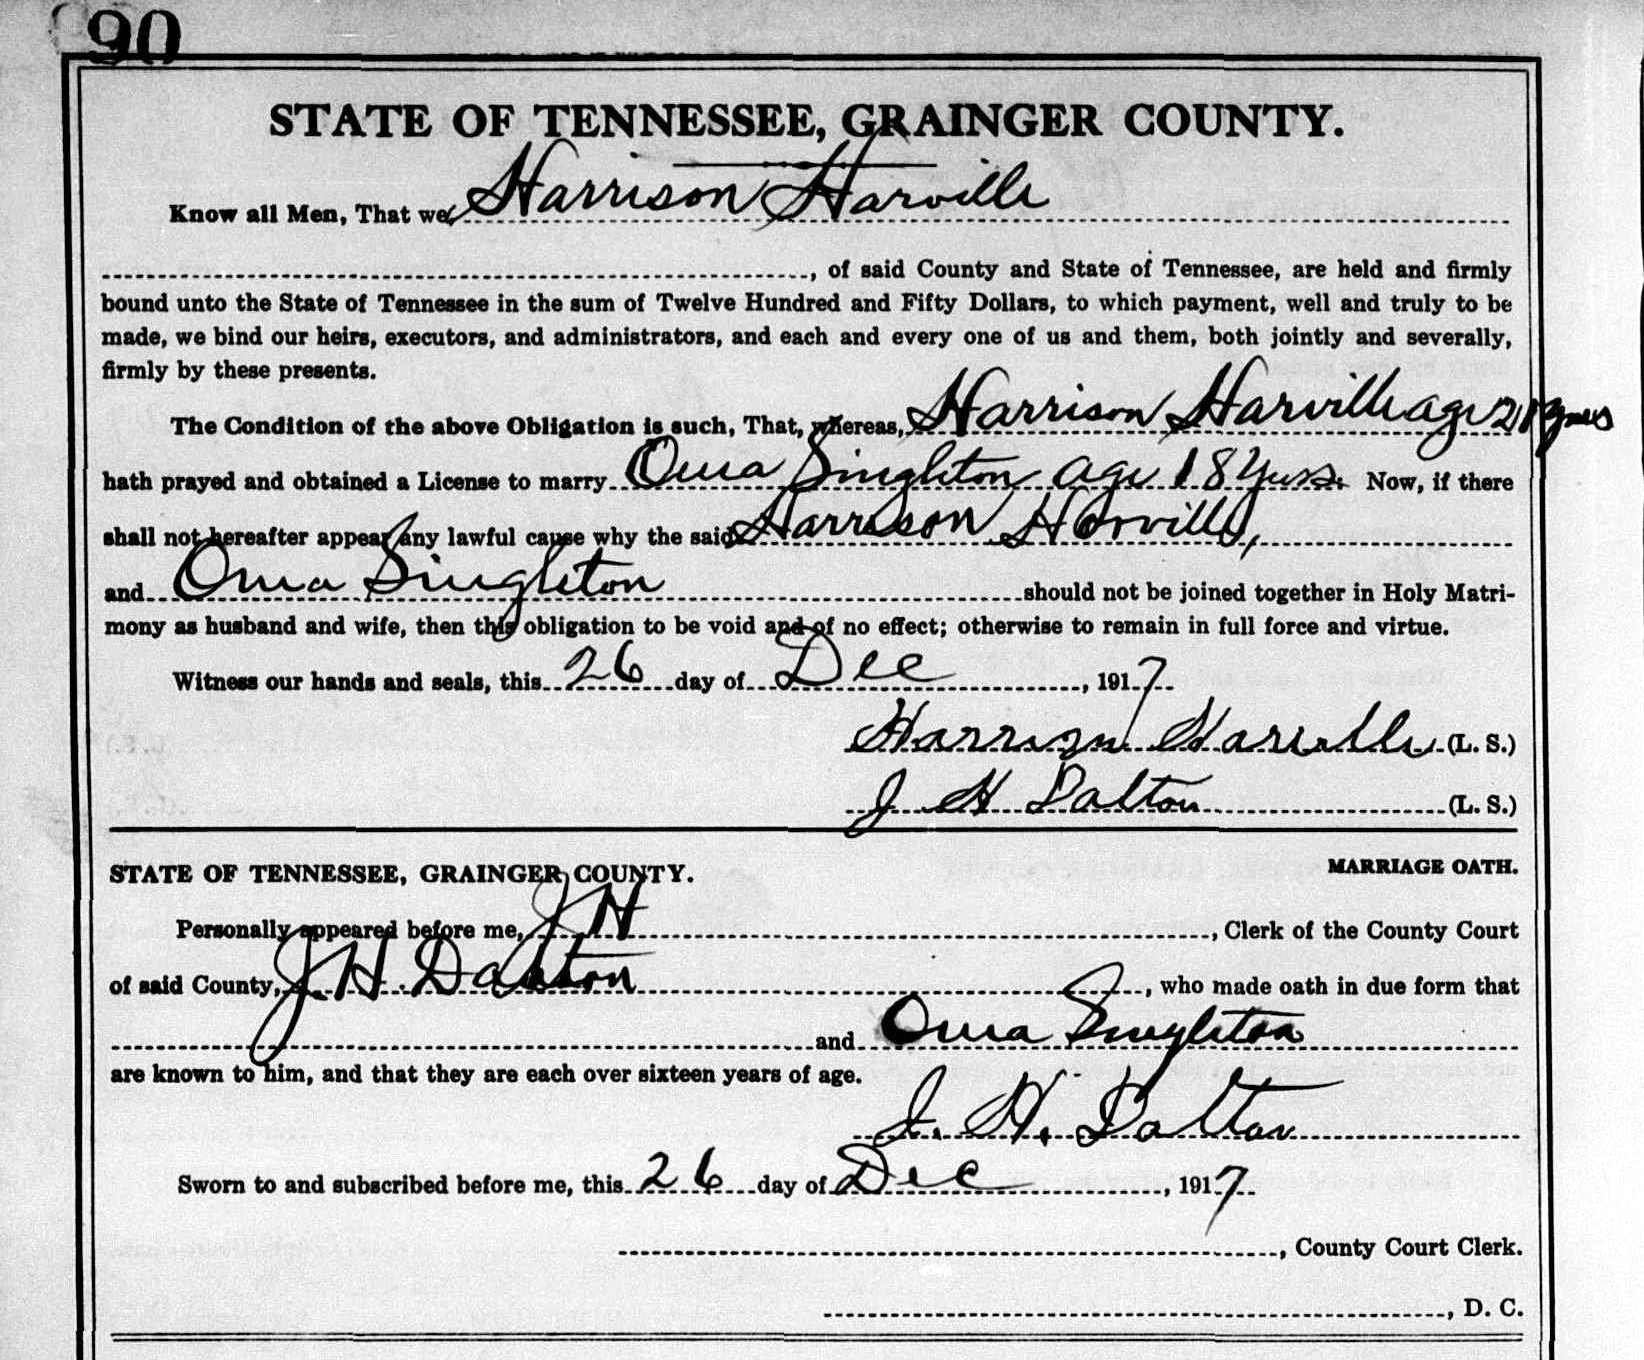 90
STATE OF TENNESSEE, GRAINGER COUNTY.
Know all Men, That we Harrison Harville
, of said County and State of Tennessee, are held and firmly
bound unto the State of Tennessee in the sum of Twelve Hundred and Fifty Dollars, to which payment, well and truly to be
made, we bind our heirs, executors, and administrators, and each and every one of us and them, both jointly and severally,
firmly by these presents.
The Condition of the above Obligation is such, That, whereas, Harrison Harville age 21 years
hath prayed and obtained a License to marry Oma Singleton age 18 years. Now, if there
shall not hereafter appear any lawful cause why the said Harrison Harville,
and Oma Singleton should not be joined together in Holy Matri-
mony as husband and wife, then this obligation to be void and of no effect; otherwise to remain in full force and virtue.
Witness our hands and seals, this 26 day of Dec, 1917
Harrison Harville (L. S.)
J H Dalton (L. S.)
STATE OF TENNESSEE, GRAINGER COUNTY. MARRIAGE OATH.
Personally appeared before me, J H, Clerk of the County Court
of said County, J. H. Dalton, who made oath in due form that
and Oma Singleton
are known to him, and that they are each over sixteen years of age.
J. H. Dalton
Sworn to and subscribed before me, this 26 day of Dec, 1917
, County Court Clerk.
, D. C.